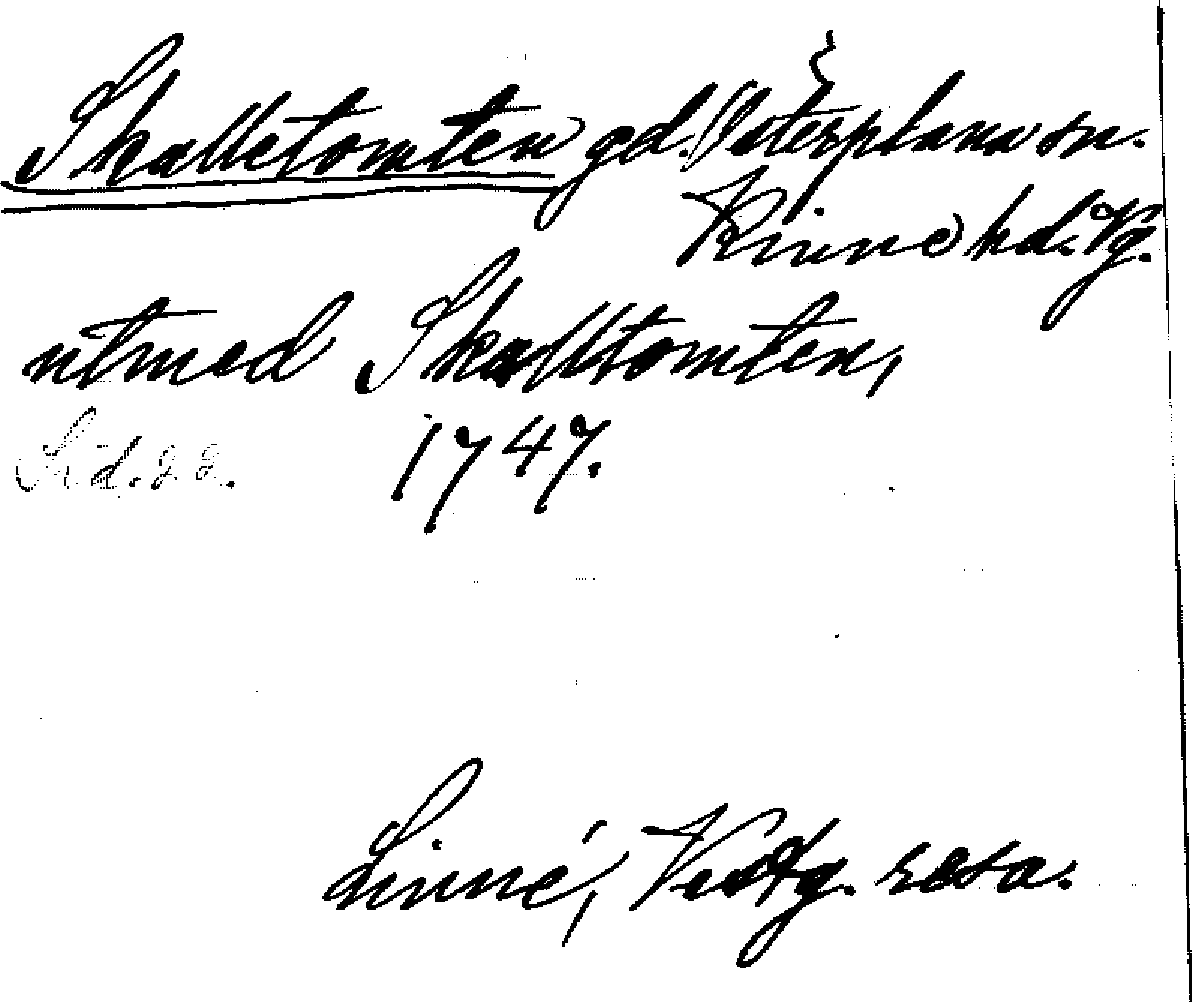 Skalletomten gd. Österplana sn.
Kinne hd. Vg.
utmed Skalltomten,
Sid. 22. 1747.
Linné, Vestg. resa.